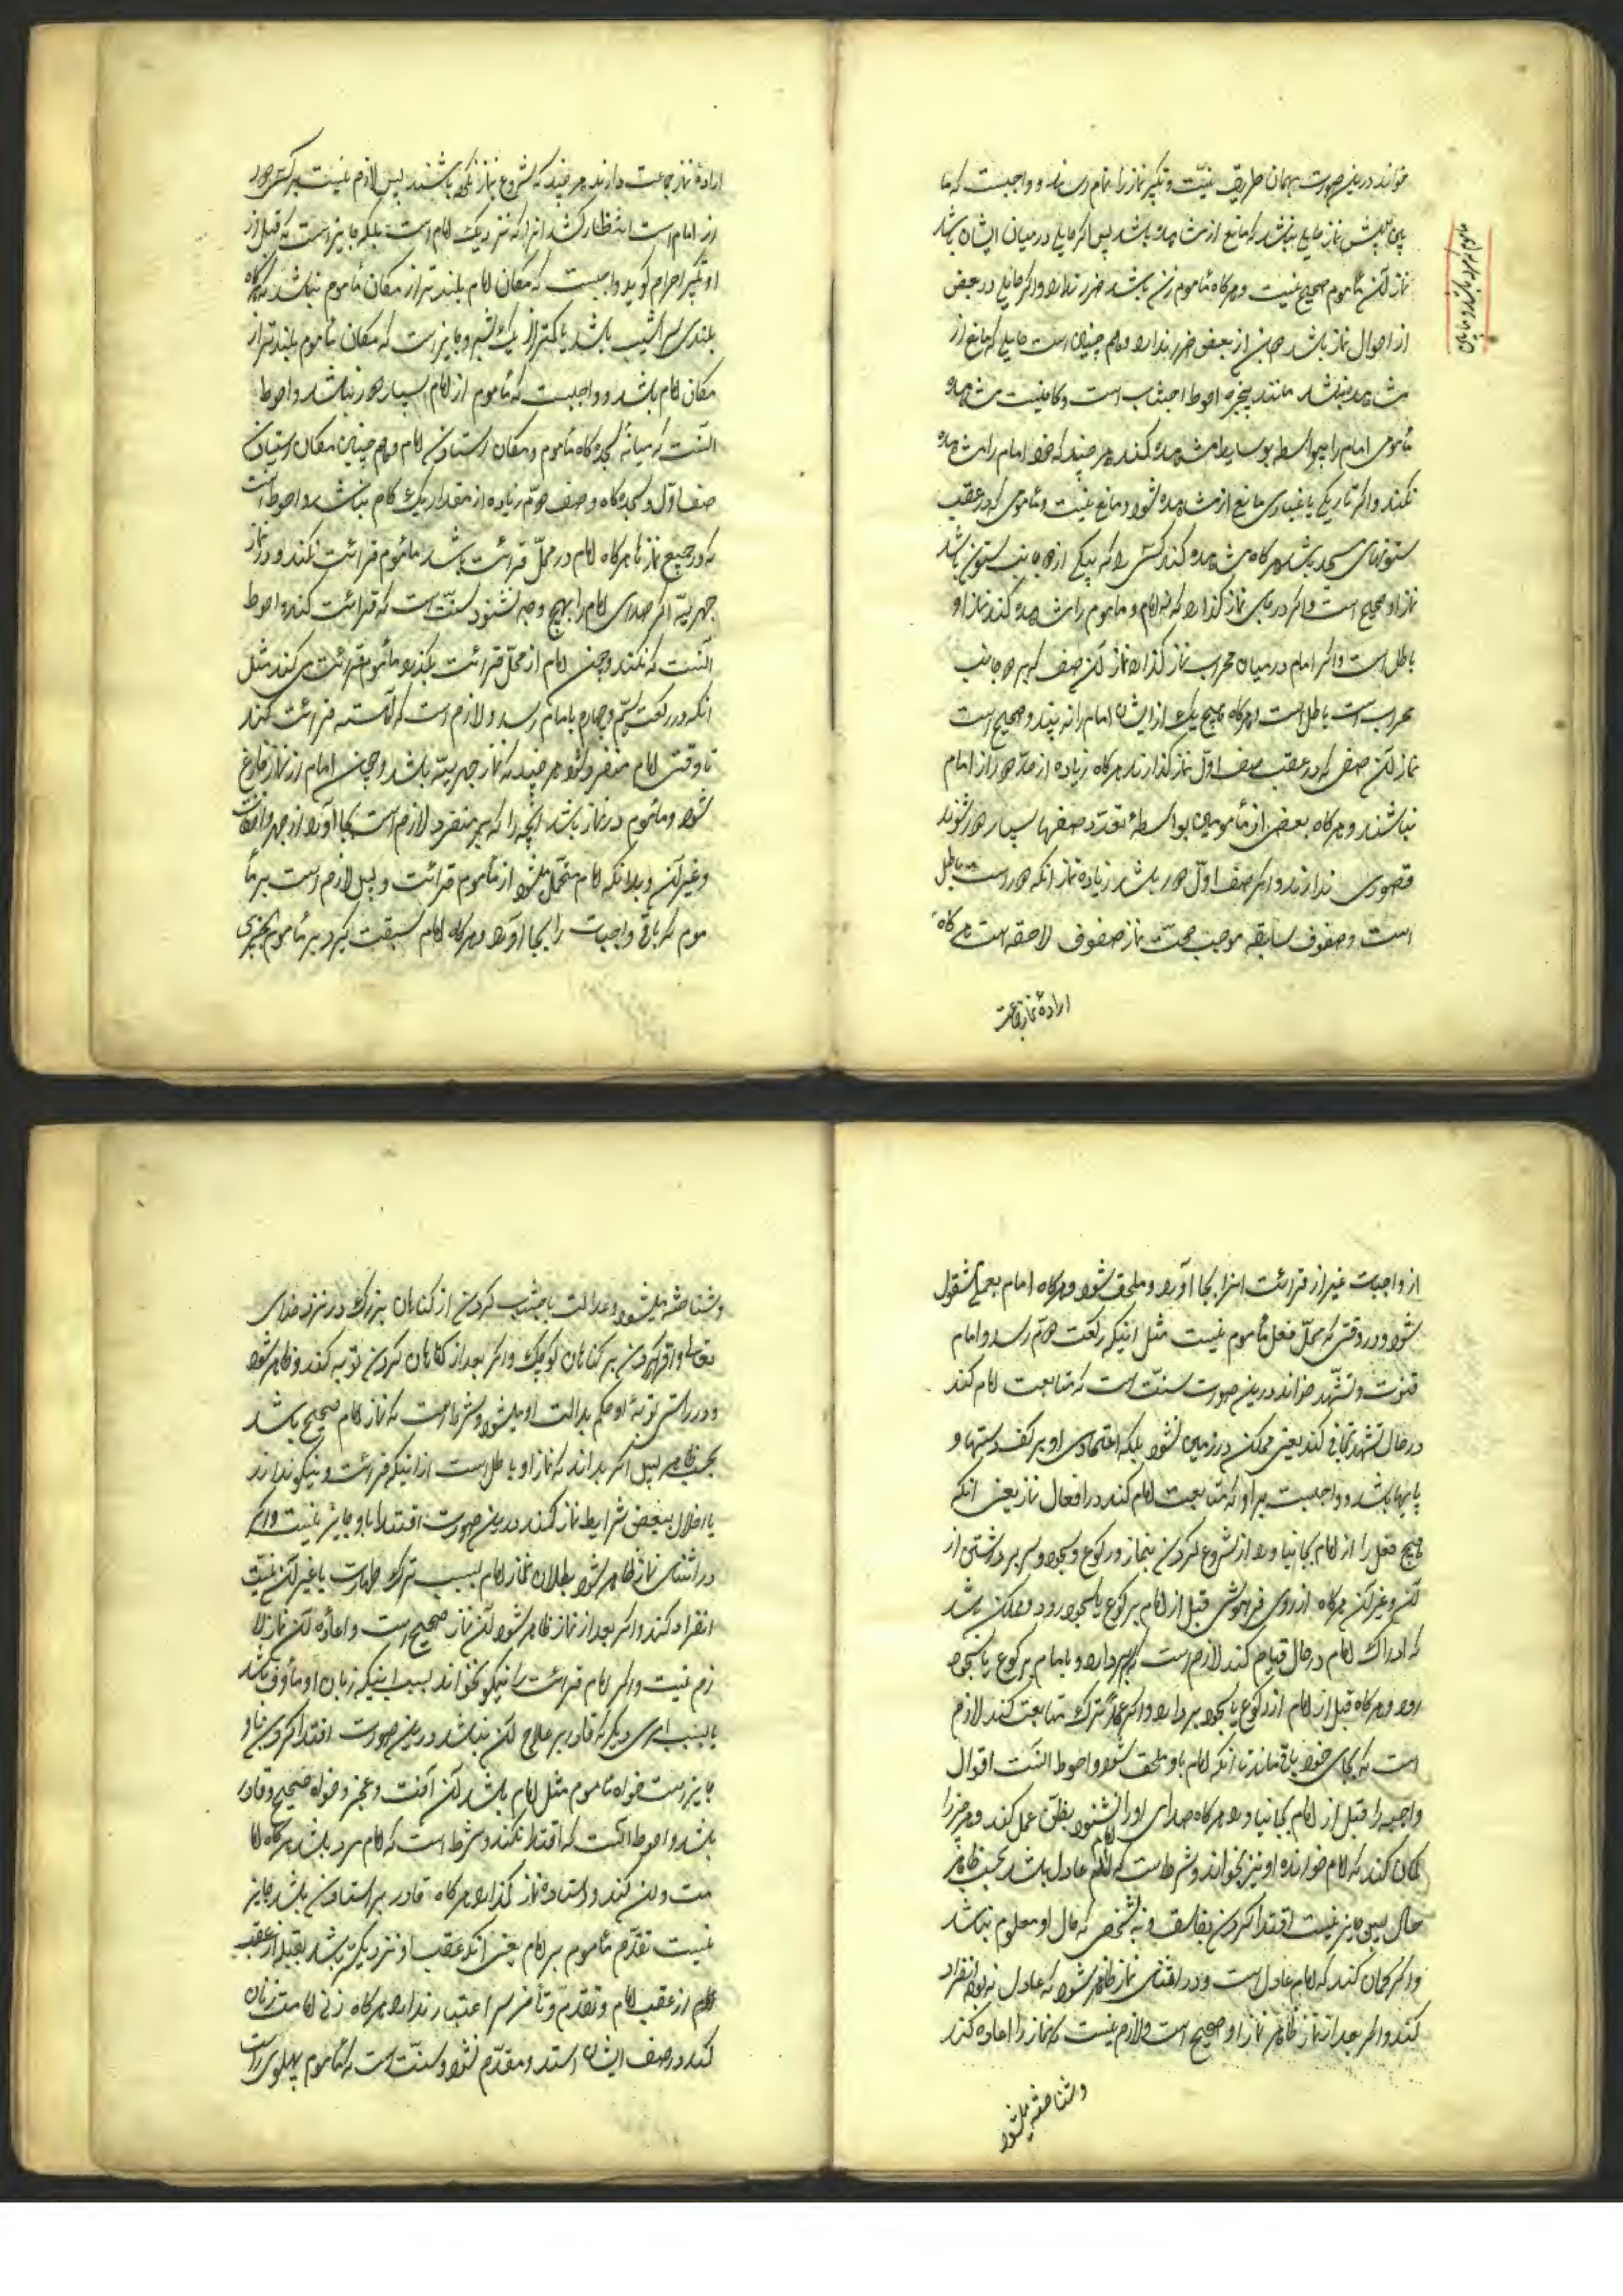 خواند درین صورت بهمان طریق نیّت و تکبیر نماز را تمام رساند و واجبست که ما
نماز آن مأموم صحیح نیست و هرگاه مأموم زن باشد ضرر ندارد و اگر حایلی در بعض
از احوال نماز باشد بعض ضرر ندارد و هم چنین است حایلی که مانع از
مشاهده نباشد مانند پنجره احوط اجتناب است و کافیست مشاهده
مأمومی امام را بیواسطه یا بوسایط مشاهده کند هر چند که خود امام را مشاهده
نکند و اگر تاریکی یا غباری مانع از مشاهده شود مانع نیست و مأمومی که در عقب
ستونهای مسجد باشد هرگاه مشاهده کند کسی را که بیکی از دو جانب ستون باشد
نماز او صحیح است و اگر در جای نماز گذارد که نه امام و مأموم را مشاهده کند نماز او
باطل است و اگر امام در میان محراب نماز گذارد نماز آن صف که بر دو جانب
محراب است باطل است هرگاه هیچ یک از ایشان امام را نه بیند و صحیح است
نماز آن صف که در عقب صف اول نماز گذارند هرگاه زیاده از حد دور از امام
نباشند و هرگاه بعض از مأمومین بواسطهٔ تعدّد صفها بسیار دور شوند
قصوری ندارد و اگر صف اول دور باشد زیاده از آنکه رواست باطل
است و صفوف سابقه موجب صحت نماز صفوف لاحقه است هرگاه
ارادهٔ نماز جماعت
ارادهٔ نماز جماعت دارند هر چند که شروع بنماز نکرده باشند پس لازم نیست بر کسی که دور
از امام است انتظار کشد آنرا که نزدیک امام است بلکه جایز است که قبل از
او تکبیر احرام گوید و واجبست که مکان امام بلندتر از مکان مأموم نباشد مگر آنکه
بلندی سراشیب باشد یا کمتر از یک شبر و جایز است که مکان مأموم بلندتر از
مکان امام باشد و واجبست که مأموم از امام بسیار دور نباشد و احوط
آنست که میانه سجده گاه مأموم و مکان ایستادن امام و هم چنین مکان ایستادن
صف اوّل و سجده گاه صف دوّم زیاده از مقدار یک گام نباشد و احوط آنست
که در جمیع نماز ها هرگاه امام در محلّ قرائت باشد مأموم قرائت نکند و در نماز
جهریّه اگر صدای امام را بهیچ وجه نشنود سنّت است که قرائت کند و احوط
آنست که نکند و چون امام از محلّ قرائت بگذرد مأموم قرائت می کند مثل
آنکه در رکعت سیّم و چهارم بامام رسد و لازم است که آهسته قرائت کند
تا وقتی امام منفرد شود هر چند که نماز جهریّه باشد و چون امام از نماز فارغ
شود و مأموم در نماز باشد آنچه را که بر منفرد لازم است بجا آورد از جهر و اخفات
و غیر آن و بدانکه امام متحمّل میشود از مأموم قرائت و بس لازم است بر مأ
موم که باقی واجبات را بجا آورد و هرگاه امام سبقت گیرد بر مأموم بچیزی
از واجبات غیر از قرائت آنرا بجا آورد و ملحق شود و هرگاه امام بعملی مشغول
شود در وقتی که محلّ فعل مأموم نیست مثل اینکه رکعت دوّم رسد و امام
قنوت و تشهّد خواند درین صورت سنّت است که متابعت امام کند
در حال تشهّد تجافی کند یعنی متمکن در زمین نشود بلکه اعتمادی او بر کف دستها و
پایها باشد و واجبست بر او که متابعت امام کند در افعال نماز یعنی آنکه
هیچ فعل را از امام بجا نیاورد از شروع کردن بنماز و رکوع و سجود و سر برداشتن از
آن و غیر آن هرگاه از روی فراموشی قبل از امام برکوع یا سجود رود و ممکن باشد
که ادراک امام در حال قیام کند لازم است که سر بردارد و با امام برکوع یا سجود
رود و هرگاه قبل از امام از رکوع یا سجود بردارد و اگر عمداً ترک متابعت کند لازم
است که بجای خود باقی ماند تا آنکه امام باو ملحق شود و احوط آنست اقوال
واجبه را قبل از امام بجا نیاورد هرگاه صدای او را نشنود بظنّ عمل کند و هر چیز را
گمان کند که امام خوانده او نیز بخواند و شرط است که امام عادل باشد بحسب ظاهر
حال پس جایز نیست اقتدا کردن بفاسق و نه شخصی که حال او معلوم نباشد
و اگر گمان کند که امام عادل است و در اثنای نماز ظاهر شود که عادل نبود انفراد
کند و اگر بعد از نماز ظاهر نماز او صحیح است و لازم نیست که نماز را اعاده کند
و شناخته میشود
و شناخته میشود عدالت باجتناب کردن از گناهان بزرگ در نزد خدای
تعالی و اقرار نکردن بر گناهان کوچک و اگر بعد از گناهان کردن توبه کند و ظاهر شود
در راستی توبهٔ او حکم بعدالت او میشود و شرط است که نماز امام صحیح باشد
بحسب ظاهر پس اگر بداند که نماز او باطل است از اینکه قرائت و نیکو نداند
یا اخلال ببعض شرایط نماز کند درین صورت اقتدا باو جایز نیست و اگر
در اثنای نماز ظاهر شود بطلان نماز امام بسبب ترک طهارت یا غیر آن نیّت
انفراد کند و اگر بعد از نماز ظاهر شود آن نماز صحیح است و اعادهٔ آن نماز لا
زم نیست و اگر امام قرائت را نیکو نخواند بسبب اینکه زبان او مأوف باشد
یا بسبب امری دیگر که قادر بر علاج آن نباشد درین صورت اقتدا کردن باو
جایز است خواه مأموم مثل امام باشد در آن آفت و عجز و خواه صحیح و قادر
باشد و احوط آنست که اقتدا نکند و شرط است که امام مرد باشد هرگاه اما
مت مردان کند و ایستاده نماز گذارد هرگاه قادر بر ایستادن باشد جایز
نیست تقدّم مأموم بر امام یعنی آنکه عقب او نزدیکتر باشد بقبله از عقب
امام از عقب امام و تقدّم و تأخر سر اعتبار ندارد هرگاه زنی امامت زنان
کند در صف ایشان ایستد و مقدّم نشود و سنّت است که مأموم پهلوی راست